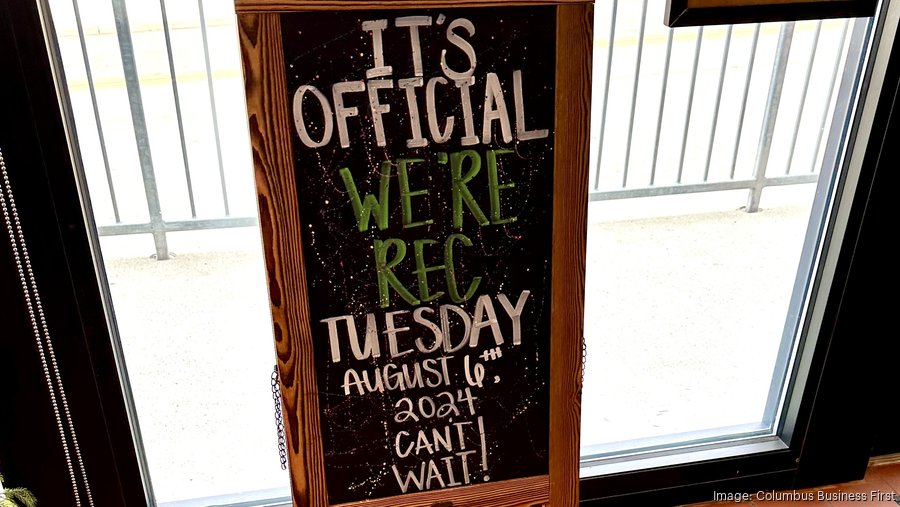 IT'S
OFFICIAL
WE'RE
REC
TUESDAY
AUGUST 6TH,
2024
CANT
WAIT!
Image: Columbus Business First